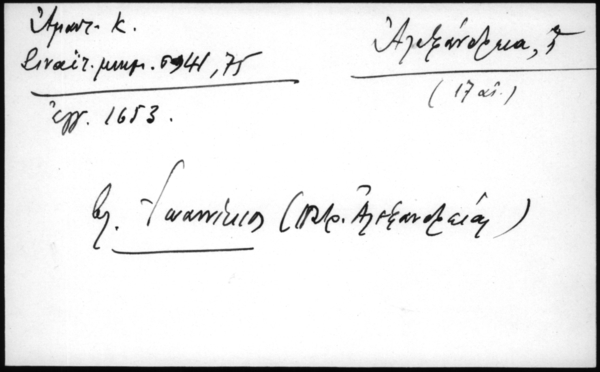 Ἄμαντ. Κ.
Σιναϊτ. μνημ. 1941, 75
ἔγγ. 1653.
Ἀλεξάνδρεια, ἡ
(17 αἰ.)
βλ. Ἰωαννίκιος (πατρ. Ἀλεξανδρείας)